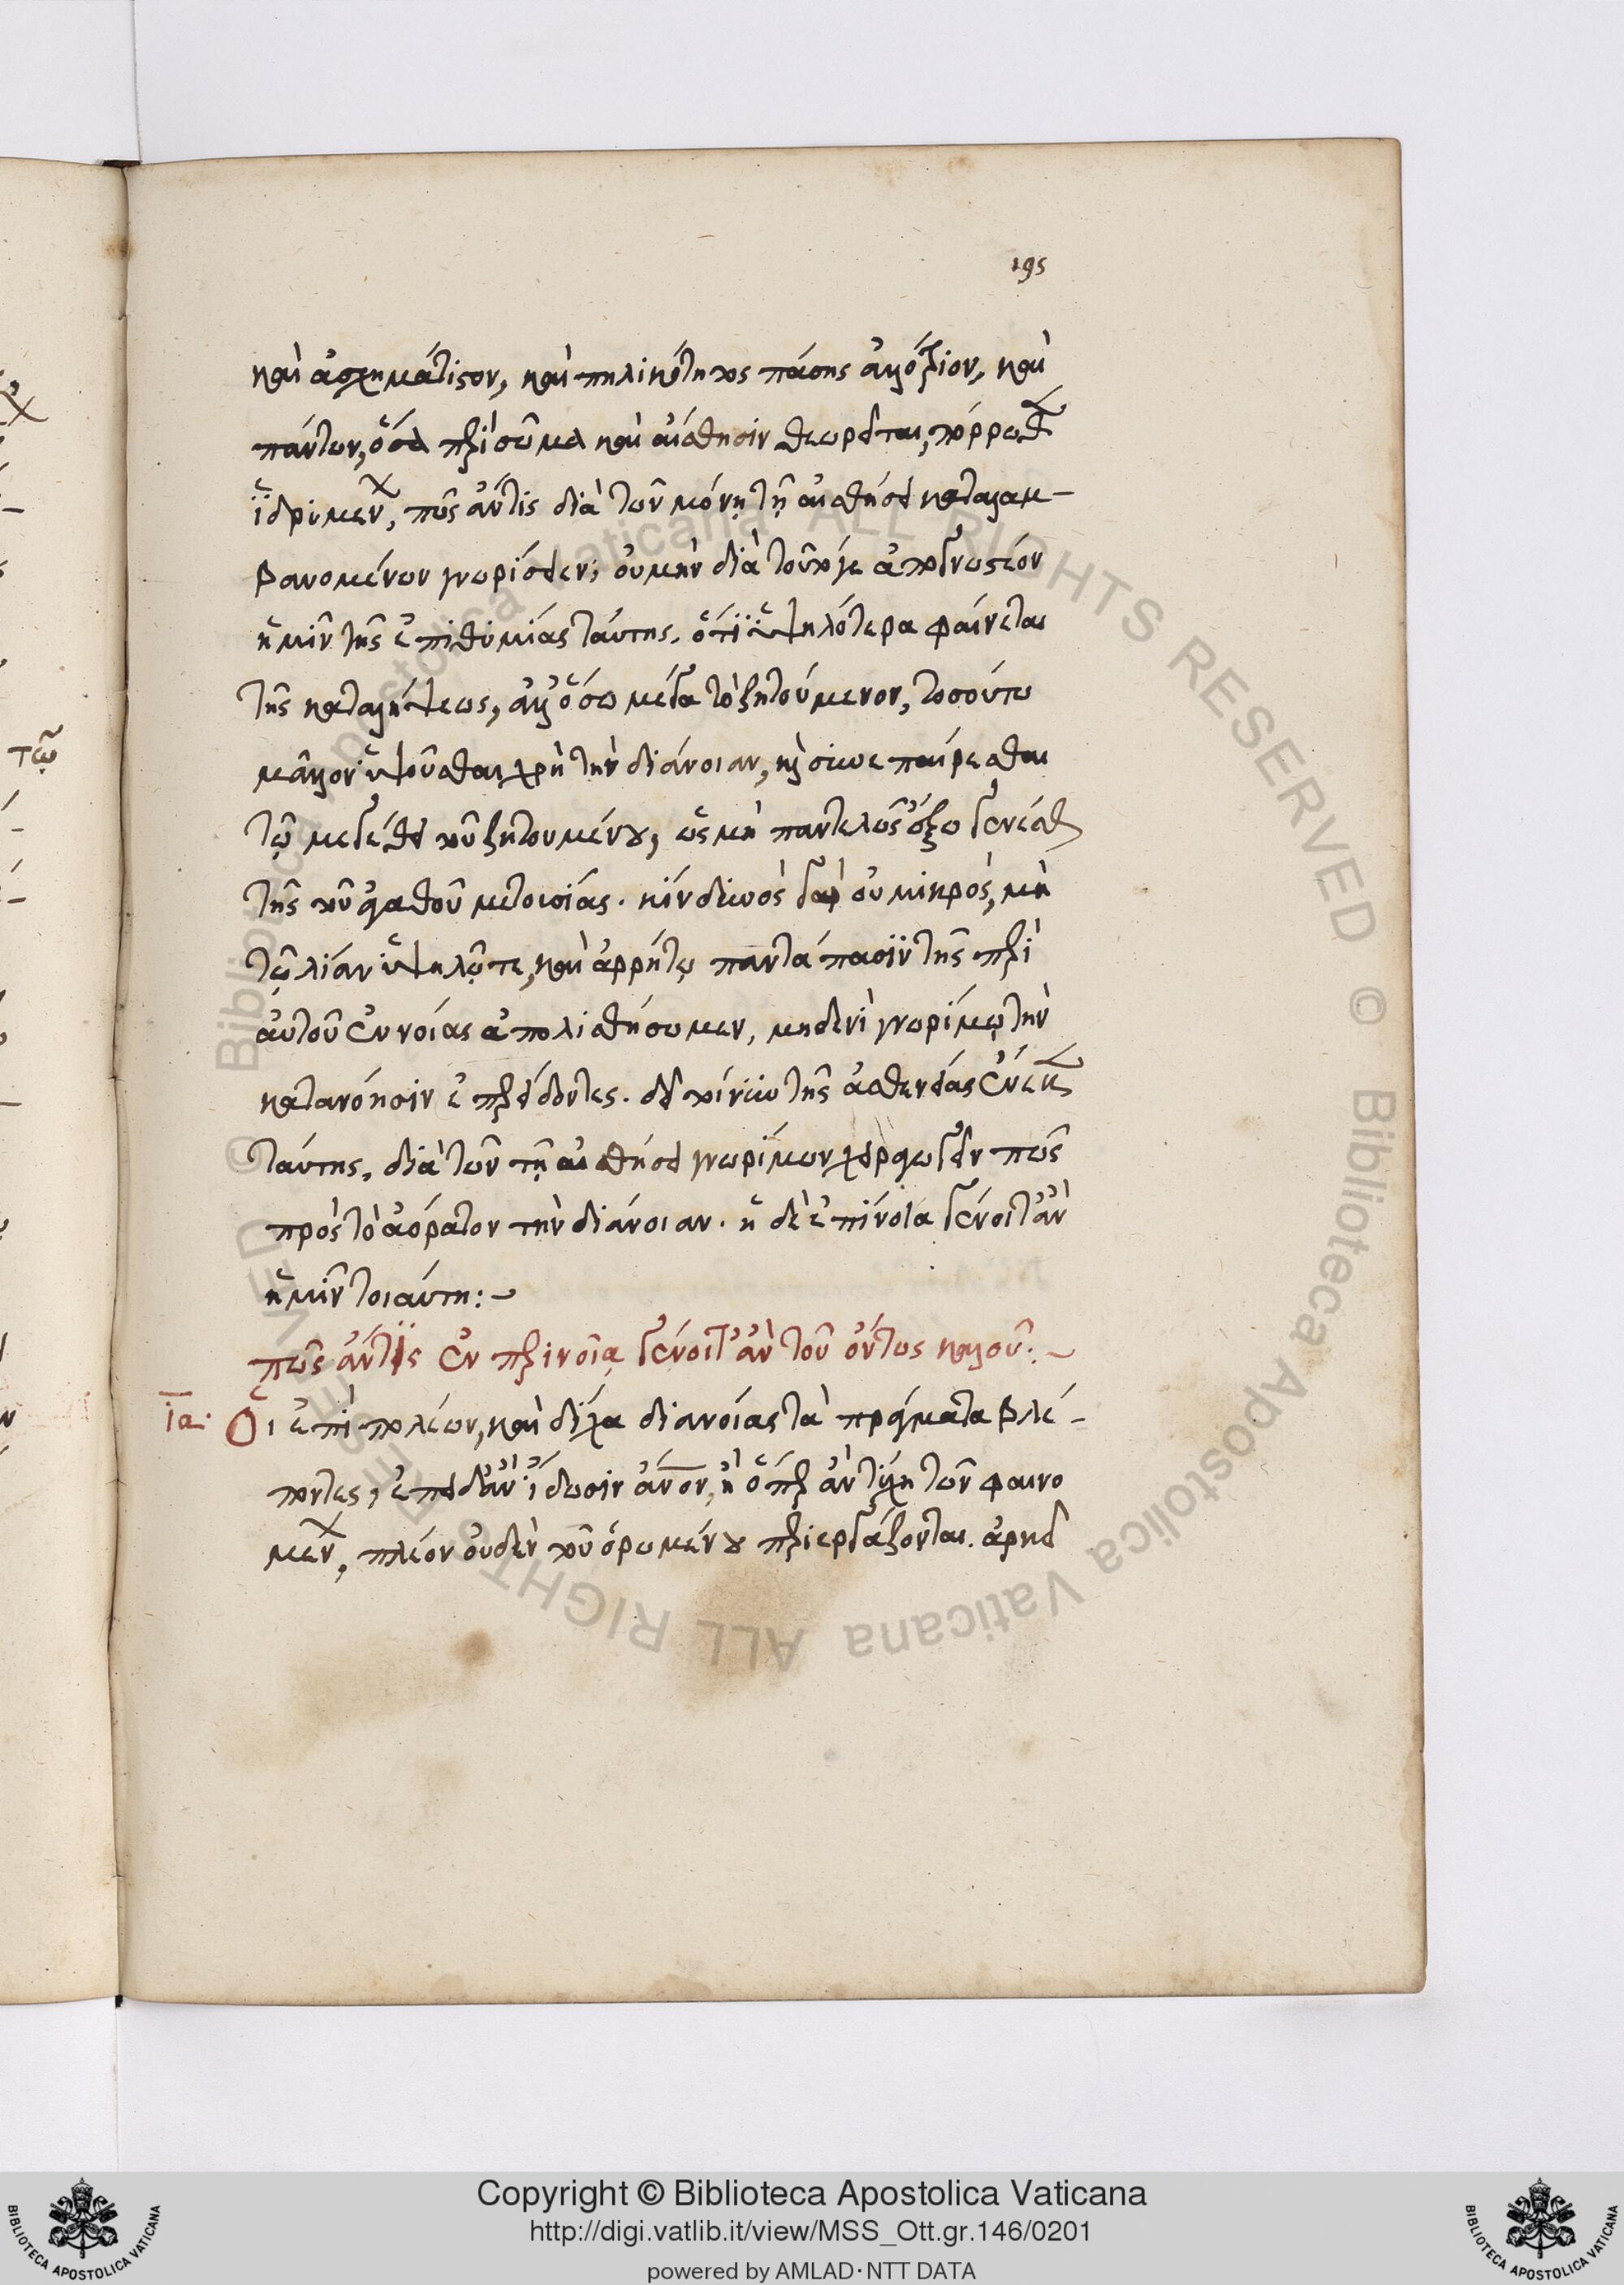 195
καὶ ἀσχημάτιστον, καὶ πηλικότητος πάσης ἀλλότριον, καὶ
πάντων, ὅσα περὶ σῶμα καὶ αἴσθησιν θεωρεῖται, πόρρωθεν
ἱδρυμένον, πῶς ἄντις διὰ τῶν μόνῃ τῇ αἰσθήσει καταλαμ-
βανομένων γνωρίσειεν; οὐμὴν διὰ τοῦτό γε ἀπογνωστέον
ἡμῖν τῆς ἐπιθυμίας ταύτης. ὅτι ὑψηλότερα φαίνεται
τῆς καταλήψεως, ἀλλ' ὅσω μέγα τὸ ζητούμενον, τοσούτω
μᾶλλον ὑψοῦσθαι χρὴ τὴν διάνοιαν, καὶ συνεπαίρεσθαι
τῷ μεγέθει τοῦ ζητουμένου, ὡς μὴ παντελῶς ἔξω γενέσθαι
τῆς τοῦ ἀγαθοῦ μετουσίας. κίνδυνος γὰρ οὐ μικρὸς, μὴ
τῷ λίαν ὑψηλῷ τε, καὶ ἀρρήτῳ παντάπασιν τῆς περὶ
αὐτοῦ ἐννοίας ἀπολισθήσωμεν, μηδενὶ γνωρίμῳ τὴν
κατανόησιν ἐπερείδοντες. δεῖ τοίνυν τῆς ἀσθενείας ἕνεκεν
ταύτης, διὰ τῶν τῇ αἰσθήσει γνωρίμων χειραγωγεῖν πως
πρὸς τὸ ἀόρατον τὴν διάνοιαν. ἡ δὲ ἐπίνοια γένοιτ' ἂν
ἡμῖν τοιαύτη:~
πῶς ἄντις ἐν περινοίᾳ γένοιτ' ἂν τοῦ ὄντως καλοῦ:~
ια. Οἱ ἐπὶ πλέων, καὶ δίχα διανοίας τὰ πράγματα βλέ-
ποντες, ἐπειδὰν ἴδωσιν ἄνον, ἢ ὅπερ ἂν τύχῃ τῶν φαινο
μένων, πλέον οὐδὲν τοῦ ὁρωμένου περιεργάζονται. ἀρκεῖ
τῷ
Copyright © Biblioteca Apostolica Vaticana
http://digi.vatlib.it/view/MSS_Ott.gr.146/0201
powered by AMLAD·NTT DATA
BIBLIOTECA APOSTOLICA VATICANA
BIBLIOTECA APOSTOLICA VATICANA
© Biblioteca Apostolica Vaticana ALL RIGHTS RESERVED © Biblioteca Apostolica Vaticana ALL RIGHTS RESERVED